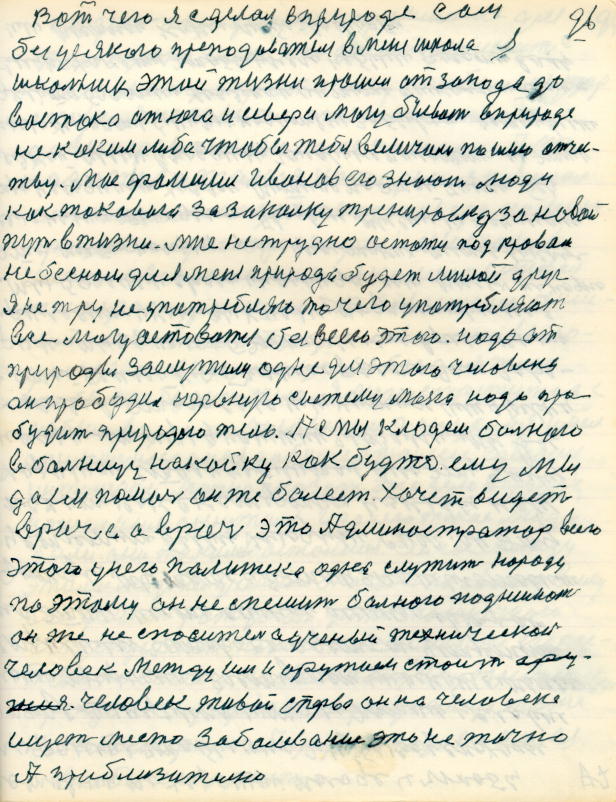 Вот чего я сделал в природе сам 96
без усякого преподователя в мене школа
школник этой жизни прошел от запода до
востока от юга и севера могу бывать в природе
не каким либа чтобы тебя величали по имю отчи-
тву. Мое фамилии Иванов его знают люди
как токового за закалку тренировку за новый
путь в жизни. Мне не трудно остати под кровам
небесном для меня природа будет милой друг
Я не тру не употребляю то чего употребляют
все могу остоватся без всего этого. надо от
природы заслужили одне для этого человека
он пробудил нервную систему мозга надо про-
будит природою тело. А мы кладем болного
в болницу на койку как будто. ему мы
даем помоч он же болеет. Хочет видет
врача а врач это Администратор всего
этого у него политика одна служит народу
по этому он не спешит болного поднимат
он же не спаситель а ученый технической
человек между им и оружием стоит ору-
жия. человек живой ство он на человеке
ищет место заболевание это не точно
А приблизително